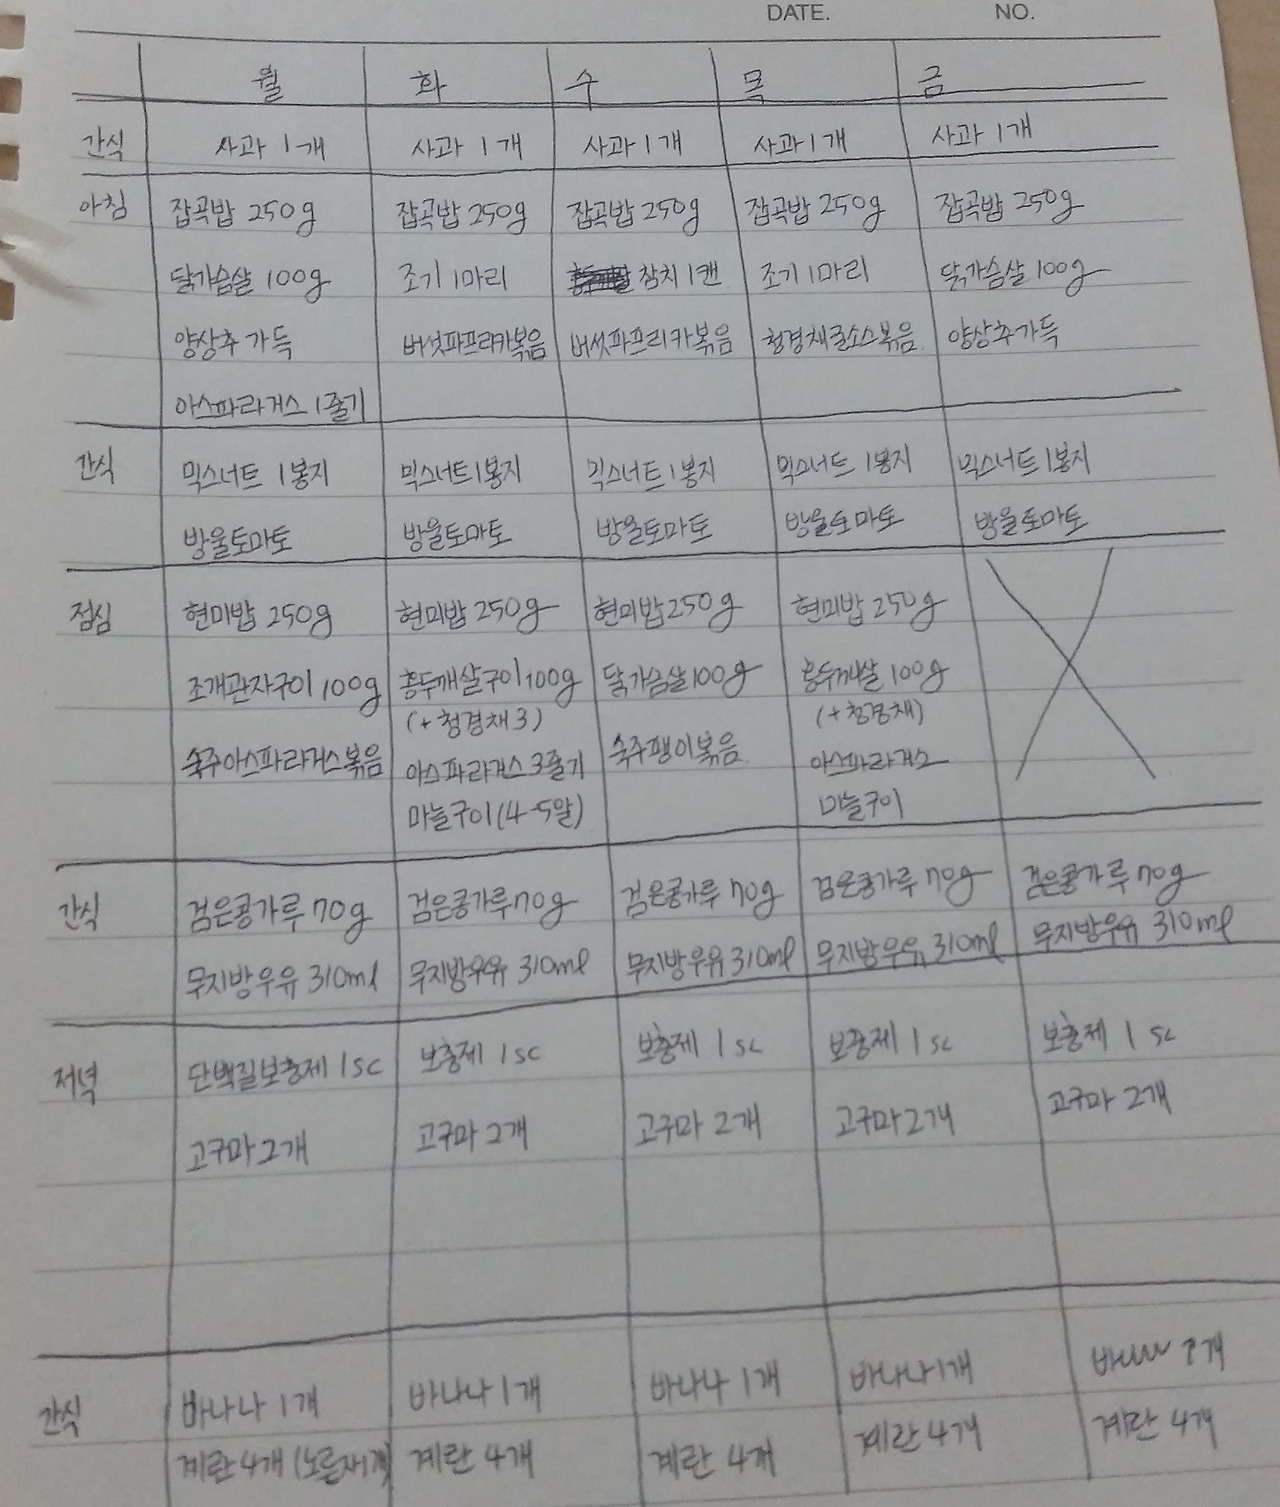 DATE. NO.
월 화 수 목 금
간식 사과 1개 사과 1개 사과 1개 사과 1개 사과 1개
아침 잡곡밥 250g 잡곡밥 250g 잡곡밥 250g 잡곡밥 250g 잡곡밥 250g
닭가슴살 100g 조기 1마리 참치 1캔 조기 1마리 닭가슴살 100g
양상추 가득 버섯파프리카볶음 버섯파프리카볶음 청경채굴소스볶음 양상추가득
아스파라거스 1줄기
간식 믹스너트 1봉지 믹스너트 1봉지 믹스너트 1봉지 믹스너트 1봉지 믹스너트 1봉지
방울토마토 방울토마토 방울토마토 방울토마토 방울토마토
점심 현미밥 250g 현미밥 250g 현미밥 250g 현미밥 250g
조개관자구이 100g 홍두깨살구이 100g 닭가슴살 100g 홍두깨살 100g
(+청경채 3) (+청경채)
숙주아스파라거스볶음 아스파라거스 3줄기 숙주팽이볶음 아스파라거스
마늘구이(4-5알) 마늘구이
간식 검은콩가루 70g 검은콩가루 70g 검은콩가루 70g 검은콩가루 70g 검은콩가루 70g
무지방우유 310ml 무지방우유 310ml 무지방우유 310ml 무지방우유 310ml 무지방우유 310ml
저녁 단백질보충제 1sc 보충제 1sc 보충제 1sc 보충제 1sc 보충제 1sc
고구마 2개 고구마 2개 고구마 2개 고구마 2개 고구마 2개
간식 바나나 1개 바나나 1개 바나나 1개 바나나 1개 바나나 1개
계란 4개 계란 4개 계란 4개 계란 4개 계란 4개